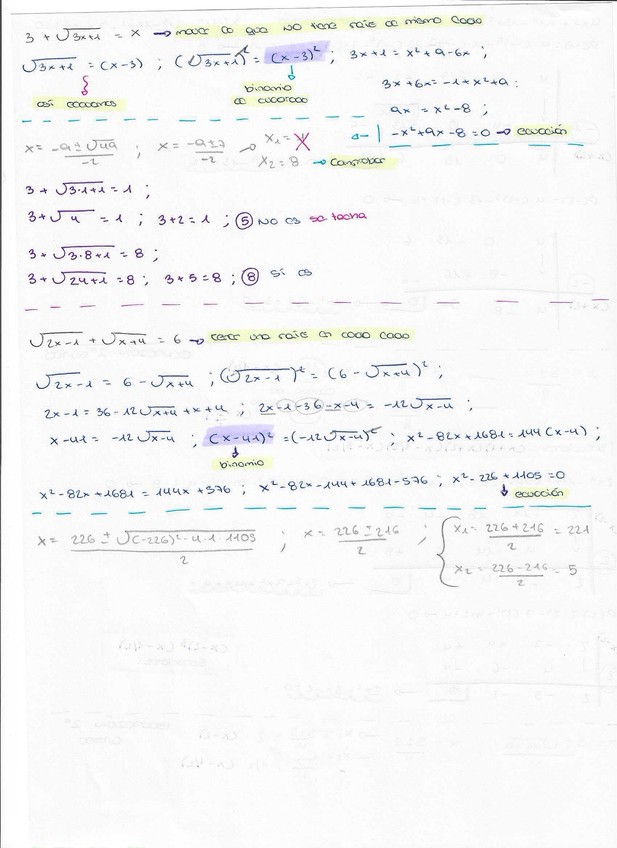 3 + √3x+1 = x → mover lo que no tiene raíz al mismo lado
√3x+1 = (x-3) ; (√3x+1)² = (x-3)² ; 3x+1 = x²+9-6x ;
binomio
al cuadrado
3x+6x = -1+x²+9 ;
9x = x²-8 ;
-x²+9x-8=0 → ecuación
x = -9±√49/-2 ; x = -9±7/-2 → x₁ = X
x₂ = 8 → comprobar
3 + √3·1+1 = 1 ;
3+√4 = 1 ; 3+2 = 1 ; 5 NO es se tacha
3 + √3·8+1 = 8 ;
3+√24+1 = 8 ; 3+5 = 8 ; 8 sí es
√2x-1 + √x+4 = 6 → tener una raíz en cada lado
√2x-1 = 6-√x+4 ; (√2x-1)² = (6-√x+4)² ;
2x-1 = 36-12√x+4 + x+4 ; 2x-1-36-x-4 = -12√x-4 ;
x-41 = -12√x-4 ; (x-41)² = (-12√x-4)² ; x²-82x+1681 = 144(x-4) ;
binomio
x²-82x+1681 = 144x+576 ; x²-82x-144+1681-576 ; x²-226+1105=0
ecuación
x = 226 ± √(-226)²-4·1·1105/2 ; x = 226±216/2 ; x₁ = 226+216/2 = 221
x₂ = 226-216/2 = 5